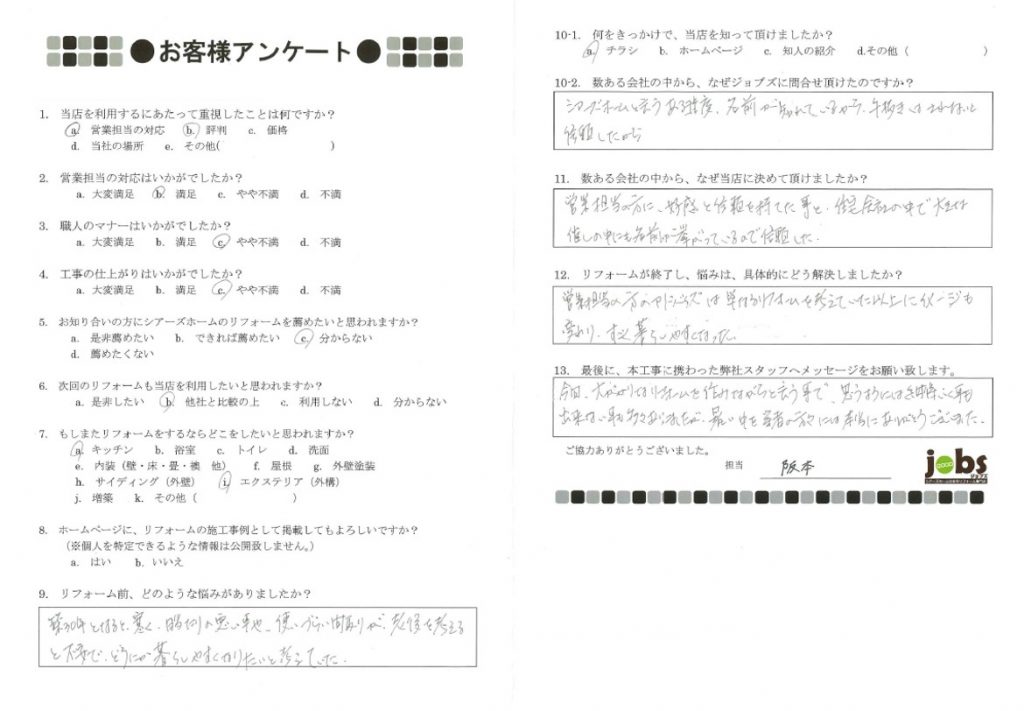 お客様アンケート
1. 当店を利用するにあたって重視したことは何ですか？
a. 営業担当の対応 b. 評判 c. 価格
d. 当社の場所 e. その他( )
2. 営業担当の対応はいかがでしたか？
a. 大変満足 b. 満足 c. やや不満 d. 不満
3. 職人のマナーはいかがでしたか？
a. 大変満足 b. 満足 c. やや不満 d. 不満
4. 工事の仕上がりはいかがでしたか？
a. 大変満足 b. 満足 c. やや不満 d. 不満
5. お知り合いの方にシアーズホームのリフォームを薦めたいと思われますか？
a. 是非薦めたい b. できれば薦めたい c. 分からない
d. 薦めたくない
6. 次回のリフォームも当店を利用したいと思われますか？
a. 是非したい b. 他社と比較の上 c. 利用しない d. 分からない
7. もしまたリフォームをするならどこをしたいと思われますか？
a. キッチン b. 浴室 c. トイレ d. 洗面
e. 内装（壁・床・畳・襖 他） f. 屋根 g. 外壁塗装
h. サイディング（外壁） i. エクステリア（外構）
j. 増築 k. その他（ ）
8. ホームページに、リフォームの施工事例として掲載してもよろしいですか？
（※個人を特定できるような情報は公開致しません。）
a. はい b. いいえ
9. リフォーム前、どのような悩みがありましたか？
寒く、使いづらい間取りが、老後を考える
と不安で、どうにか暮らしやすくなりたいと考えていた.
10-1. 何をきっかけで、当店を知って頂けましたか？
a. チラシ b. ホームページ c. 知人の紹介 d.その他（ ）
10-2. 数ある会社の中から、なぜジョブズに問合せ頂けたのですか？
ある程度、名前が知れているから、手抜き
信頼したから
11. 数ある会社の中から、なぜ当店に決めて頂けましたか？
営業担当の方に、好感と信頼を持てた事と、
催しの中にも名前が挙がっているので信頼した.
12. リフォームが終了し、悩みは、具体的にどう解決しましたか？
営業担当の方のアドバイスは リフォームを考えていた以上にイメージも
変わり、すごく暮らしやすくなった.
13. 最後に、本工事に携わった弊社スタッフへメッセージをお願い致します。
今回、大がかりなリフォームを住みながらと言う事で、思うようには
出来ない事も多々ありましたが、暑い中を業者の方々には本当にありがとうございました.
ご協力ありがとうございました。
担当 阪本
jobs
GOOD
ジョブズ